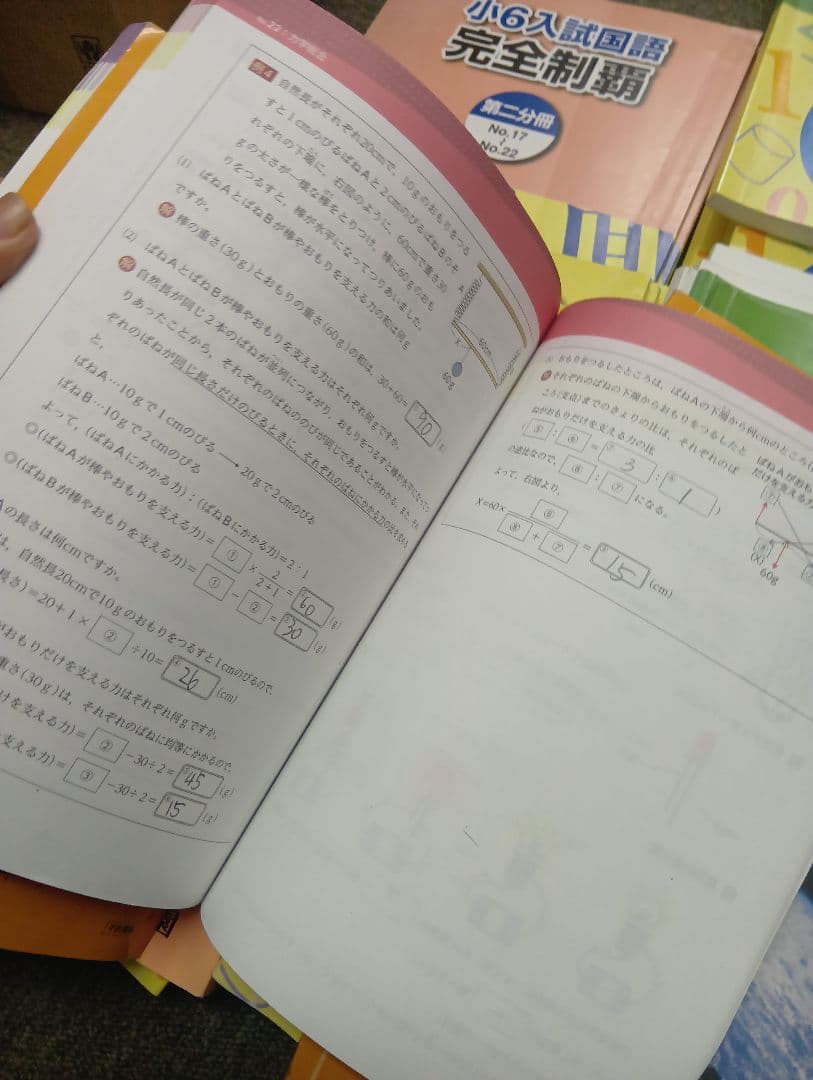 小6入試国語
完全制覇
第二分冊
No.17
~
No.22
No.22 力学総合
例4 自然長がそれぞれ20cmで、10gのおもりをつる
すと1cmのびるばねAと2cmのびるばねBのそ
れぞれの下端に、右図のように、60cmで重さ30
gの太さが一様な棒をとりつけ、棒に60gのおも
りをつるすと、棒が水平になってつりあいました。
A
60cm
X
60g
(1) ばねAとばねBが棒やおもりを支える力の和は何g
ですか。
解 棒の重さ(30g)とおもりの重さ(60g)の和は、30+60= 90 (g)
(2) ばねAとばねBが棒やおもりを支える力はそれぞれ何gですか。
解 自然長が同じ2本のばねが並列につながり、おもりをつるすと棒が水平になってつ
りあったことから、それぞれのばねののびが同じであることがわかる。また、それ
ぞれのばねが同じ長さだけのびるときに、それぞれのばねにかかる力の比を求める
と、
ばねA…10gで1cmのびる → 20gで2cmのびる
ばねB…10gで2cmのびる
よって、(ばねAにかかる力):(ばねBにかかる力)=2:1
◎(ばねAが棒やおもりを支える力)= ① × 2/2+1 = 60 (g)
◎(ばねBが棒やおもりを支える力)= ① − ② = 30 (g)
Aの長さは何cmですか。
は、自然長20cmで10gのおもりをつるすと1cmのびるので、
長さ)=20+1× ② ÷10= 26 (cm)
がおもりだけを支える力はそれぞれ何gですか。
重さ(30g)は、それぞれのばねに均等にかかるので、
けを支える力)= ② −30÷2= 45 (g)
支える力)= ③ −30÷2= 15 (g)
おもりをつるしたところは、ばねAの下端から何cmのところ
解 それぞれのばねの下端からおもりをつるしたと
ころ(支点)までのきょりの比は、それぞれのば
ねがおもりだけを支える力の比
( ⑤ : ⑥ = 3 : 1 )
の逆比なので、 ⑧ : ⑦ になる。
よって、右図より、
X=60× ⑧ / ⑧ + ⑦ = 15 (cm)
ばねAがおも
だけを支える力
(X)
60g